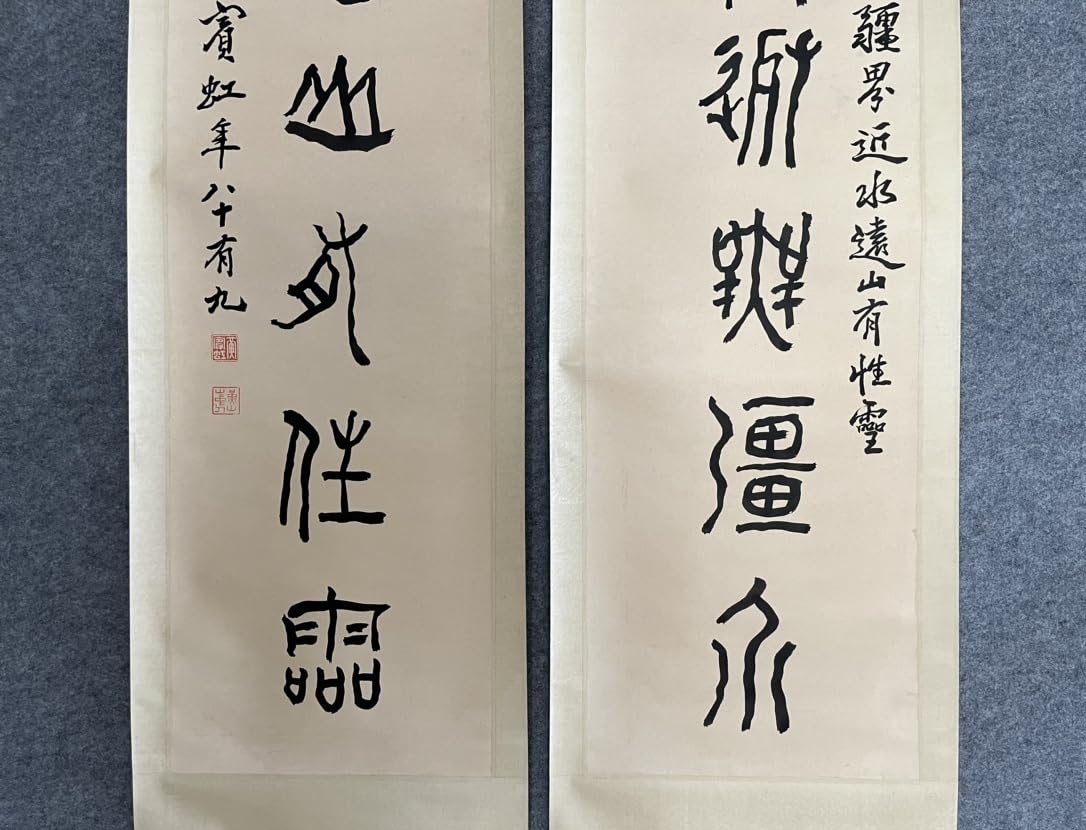 疆界近水遠山有性靈
無彊介
山有性靈
賓虹年八十有九